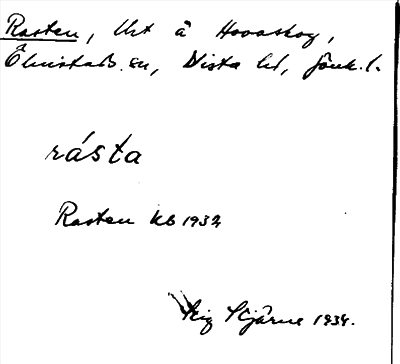 Rasten, lht å Hovaskog,
Ölmstads sn, Vista hd, Jönk. l.
rásta
Rasten KB 1932
Stig Stjärne 1934.